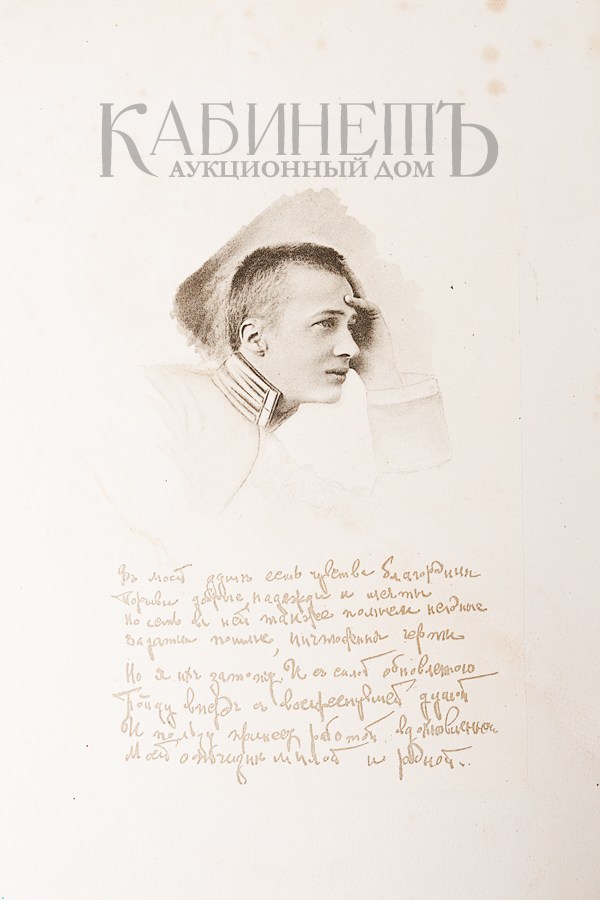 КАБИНЕТЪ
АУКЦИОННЫЙ ДОМ
Въ моей душѣ есть чувства благородныя
Порывы добрые, надежды и мечты
Но есть въ ней также
Задатки пошлые, ничтожныя черты
Но я ихъ затопчу. И съ силой обновленною
Пойду впередъ съ воскреснувшей душой
И пользу принесу работой вдохновленной
Моей отчизнѣ милой и родной..